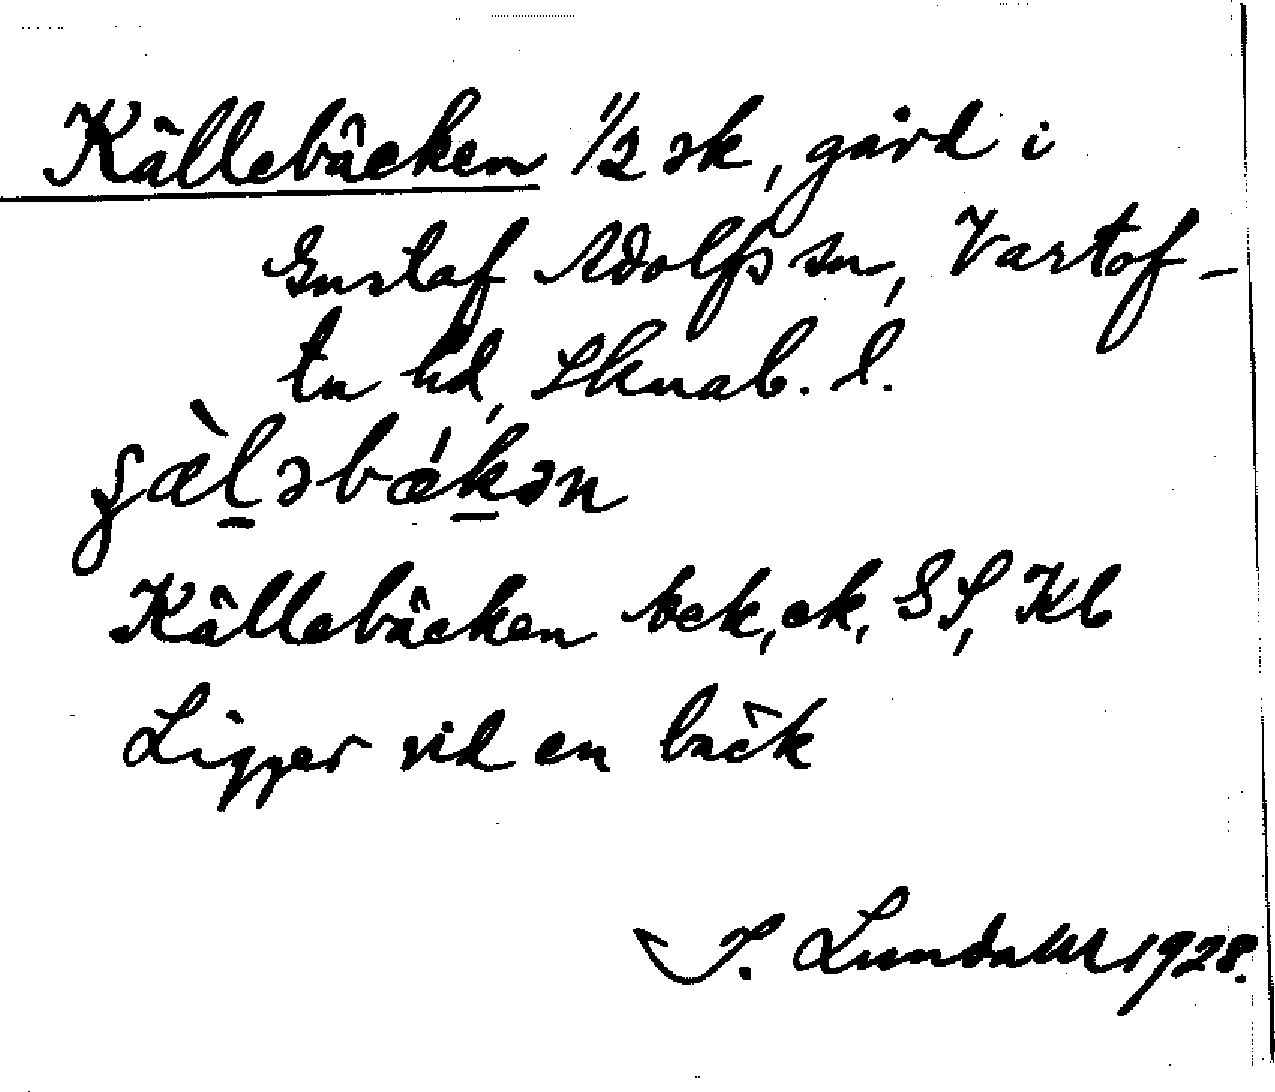 Källebäcken 1/2 sk, gård i
Gustaf Adolfs sn, Vartof-
ta hd, Skarab. l.
Källebäcken bek, ek, GS, Kb
Ligger vid en bäck
I. Lundahl 1928.